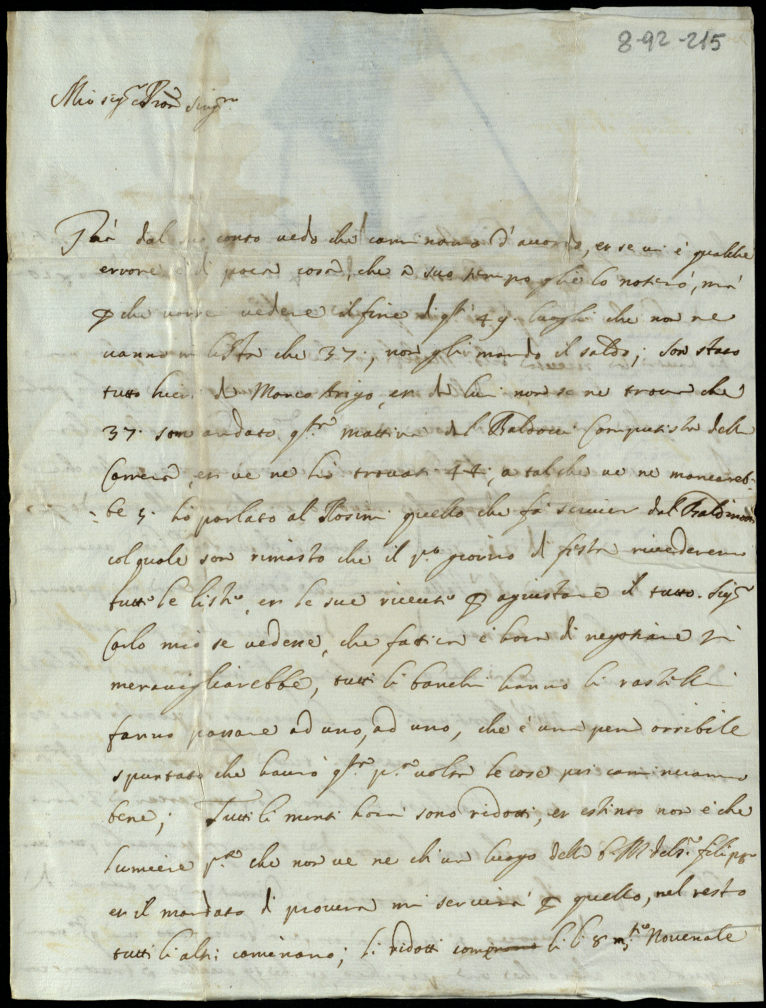 8-92-215
Mio sig.r e Pron
dal conto uedo che caminamo d'acordo, et se ui è qualche
errore è di poca cosa, che a suo tempo glie lo noterò, mà
che uorrei uedere il fine di q.ti 49. luoghi che non ne
uanno in lista che 37., non gli mando il saldo; son stato
tutto hieri da Marco Arigo, et da lui non se ne troua che
37. son andato q.ta mattina dal Baldocci Computista della
Camera, et ue ne hò trouati 44, a tal che ue ne mancareb-
be 5. hò parlato al Rosini quello che fà
col quale son rimasto che il p.o giorno di festa riuederemo
tutte le liste, et le sue riceute p agiustare il tutto. Sig.r
Carlo mio se uedesse, che fatica è hora di negotiare si
merauigliarebbe, tutti li banchi hanno li rastelli
fanno passare ad uno, ad uno, che è una pena orribile
spuntato che haurò q.ta p.a uolta le cose poi caminerann
bene; Tutti li monti hora sono ridotti, et estinto non è che
p.o che non ue ne è un luogo della b. M. del s.r Filippo
et il mandato di mi seruirà p quello, nel resto
tutti li altri caminano; li ridotti li 8 m.ti Nouenale